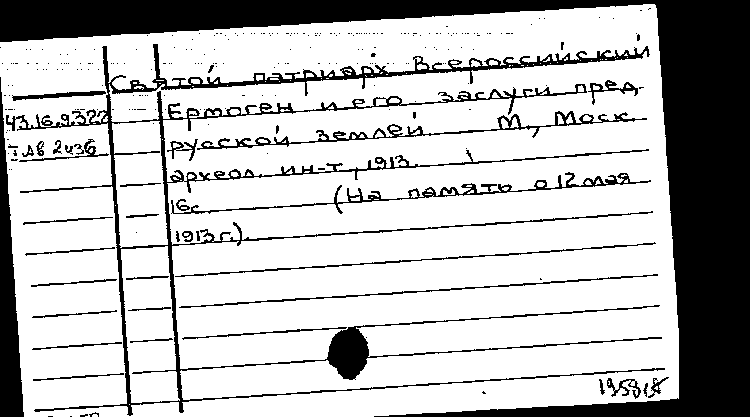 Святой патриарх Всероссийский
43.16.9.322 Ермоген и его заслуги пред
русской землей М., Моск.
археол. ин-т, 1913.
16с. (На память о 12 мая
1913 г.).